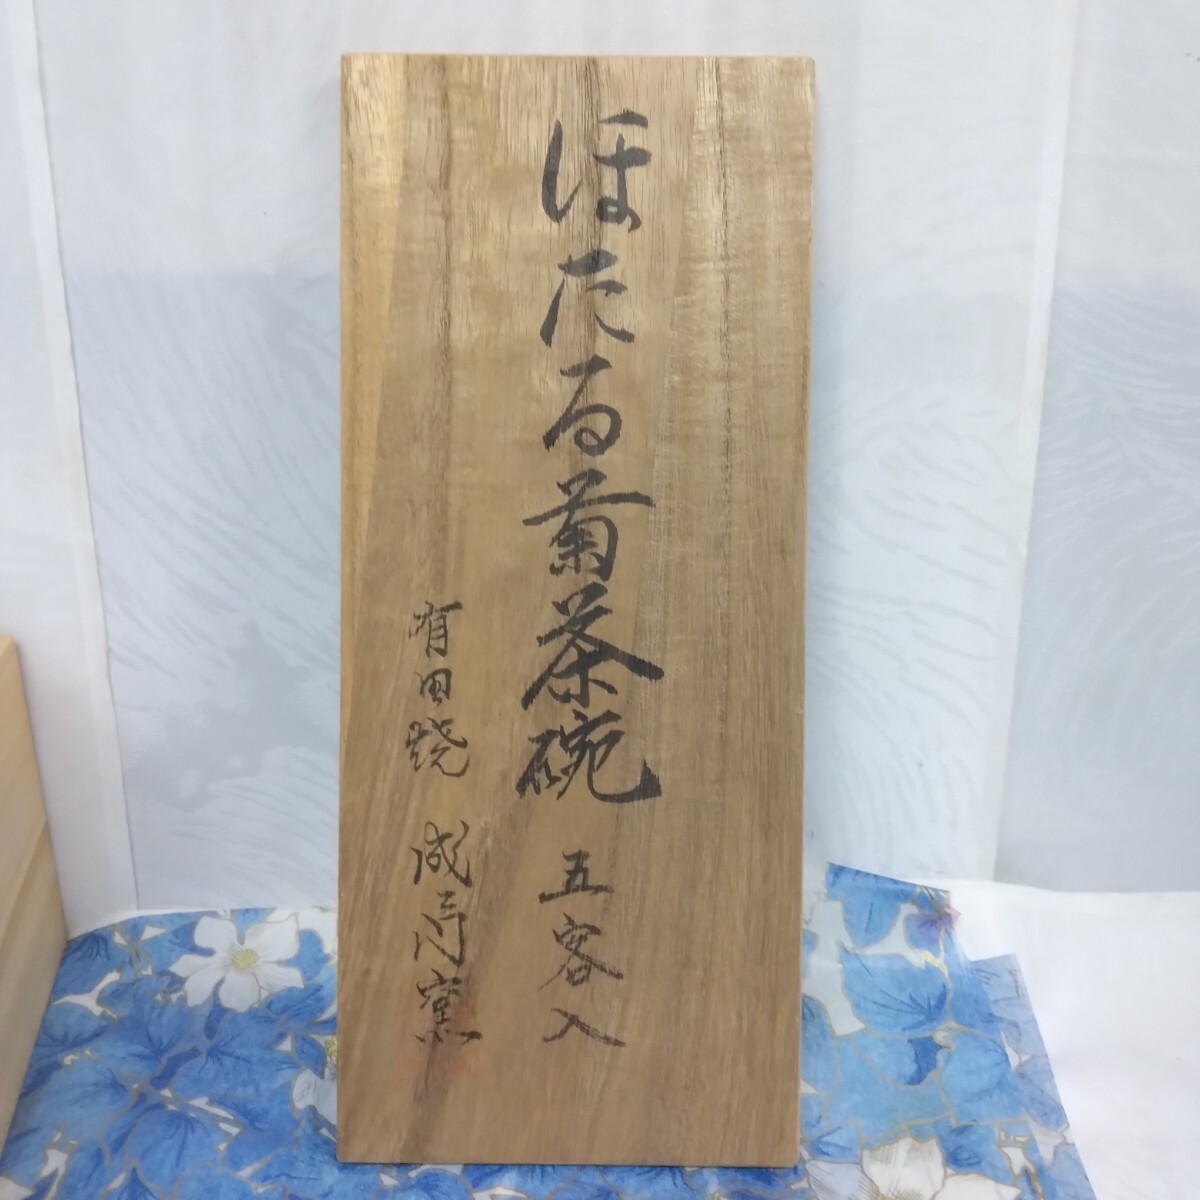 ほたる菊茶碗 五客入
有田焼 成門窯